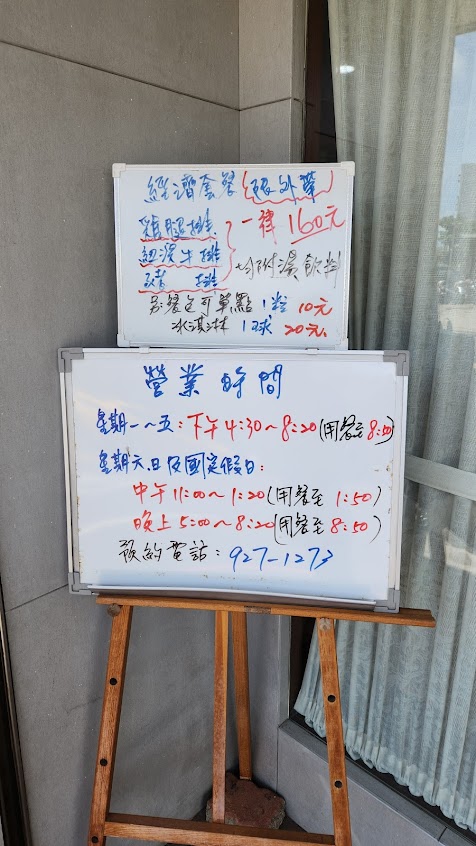 經濟套餐(限外帶)
雞腿排
紐澳牛排
豬排
一律160元
均附湯飲料
另餐包可單點 1粒 10元
冰淇淋 1球 20元
營業時間
星期一~五:下午4:30~8:20(用餐至8:50)
星期六.日及國定假日:
中午11:00~1:20(用餐至1:50)
晚上5:00~8:20(用餐至8:50)
預約電話:927-1273